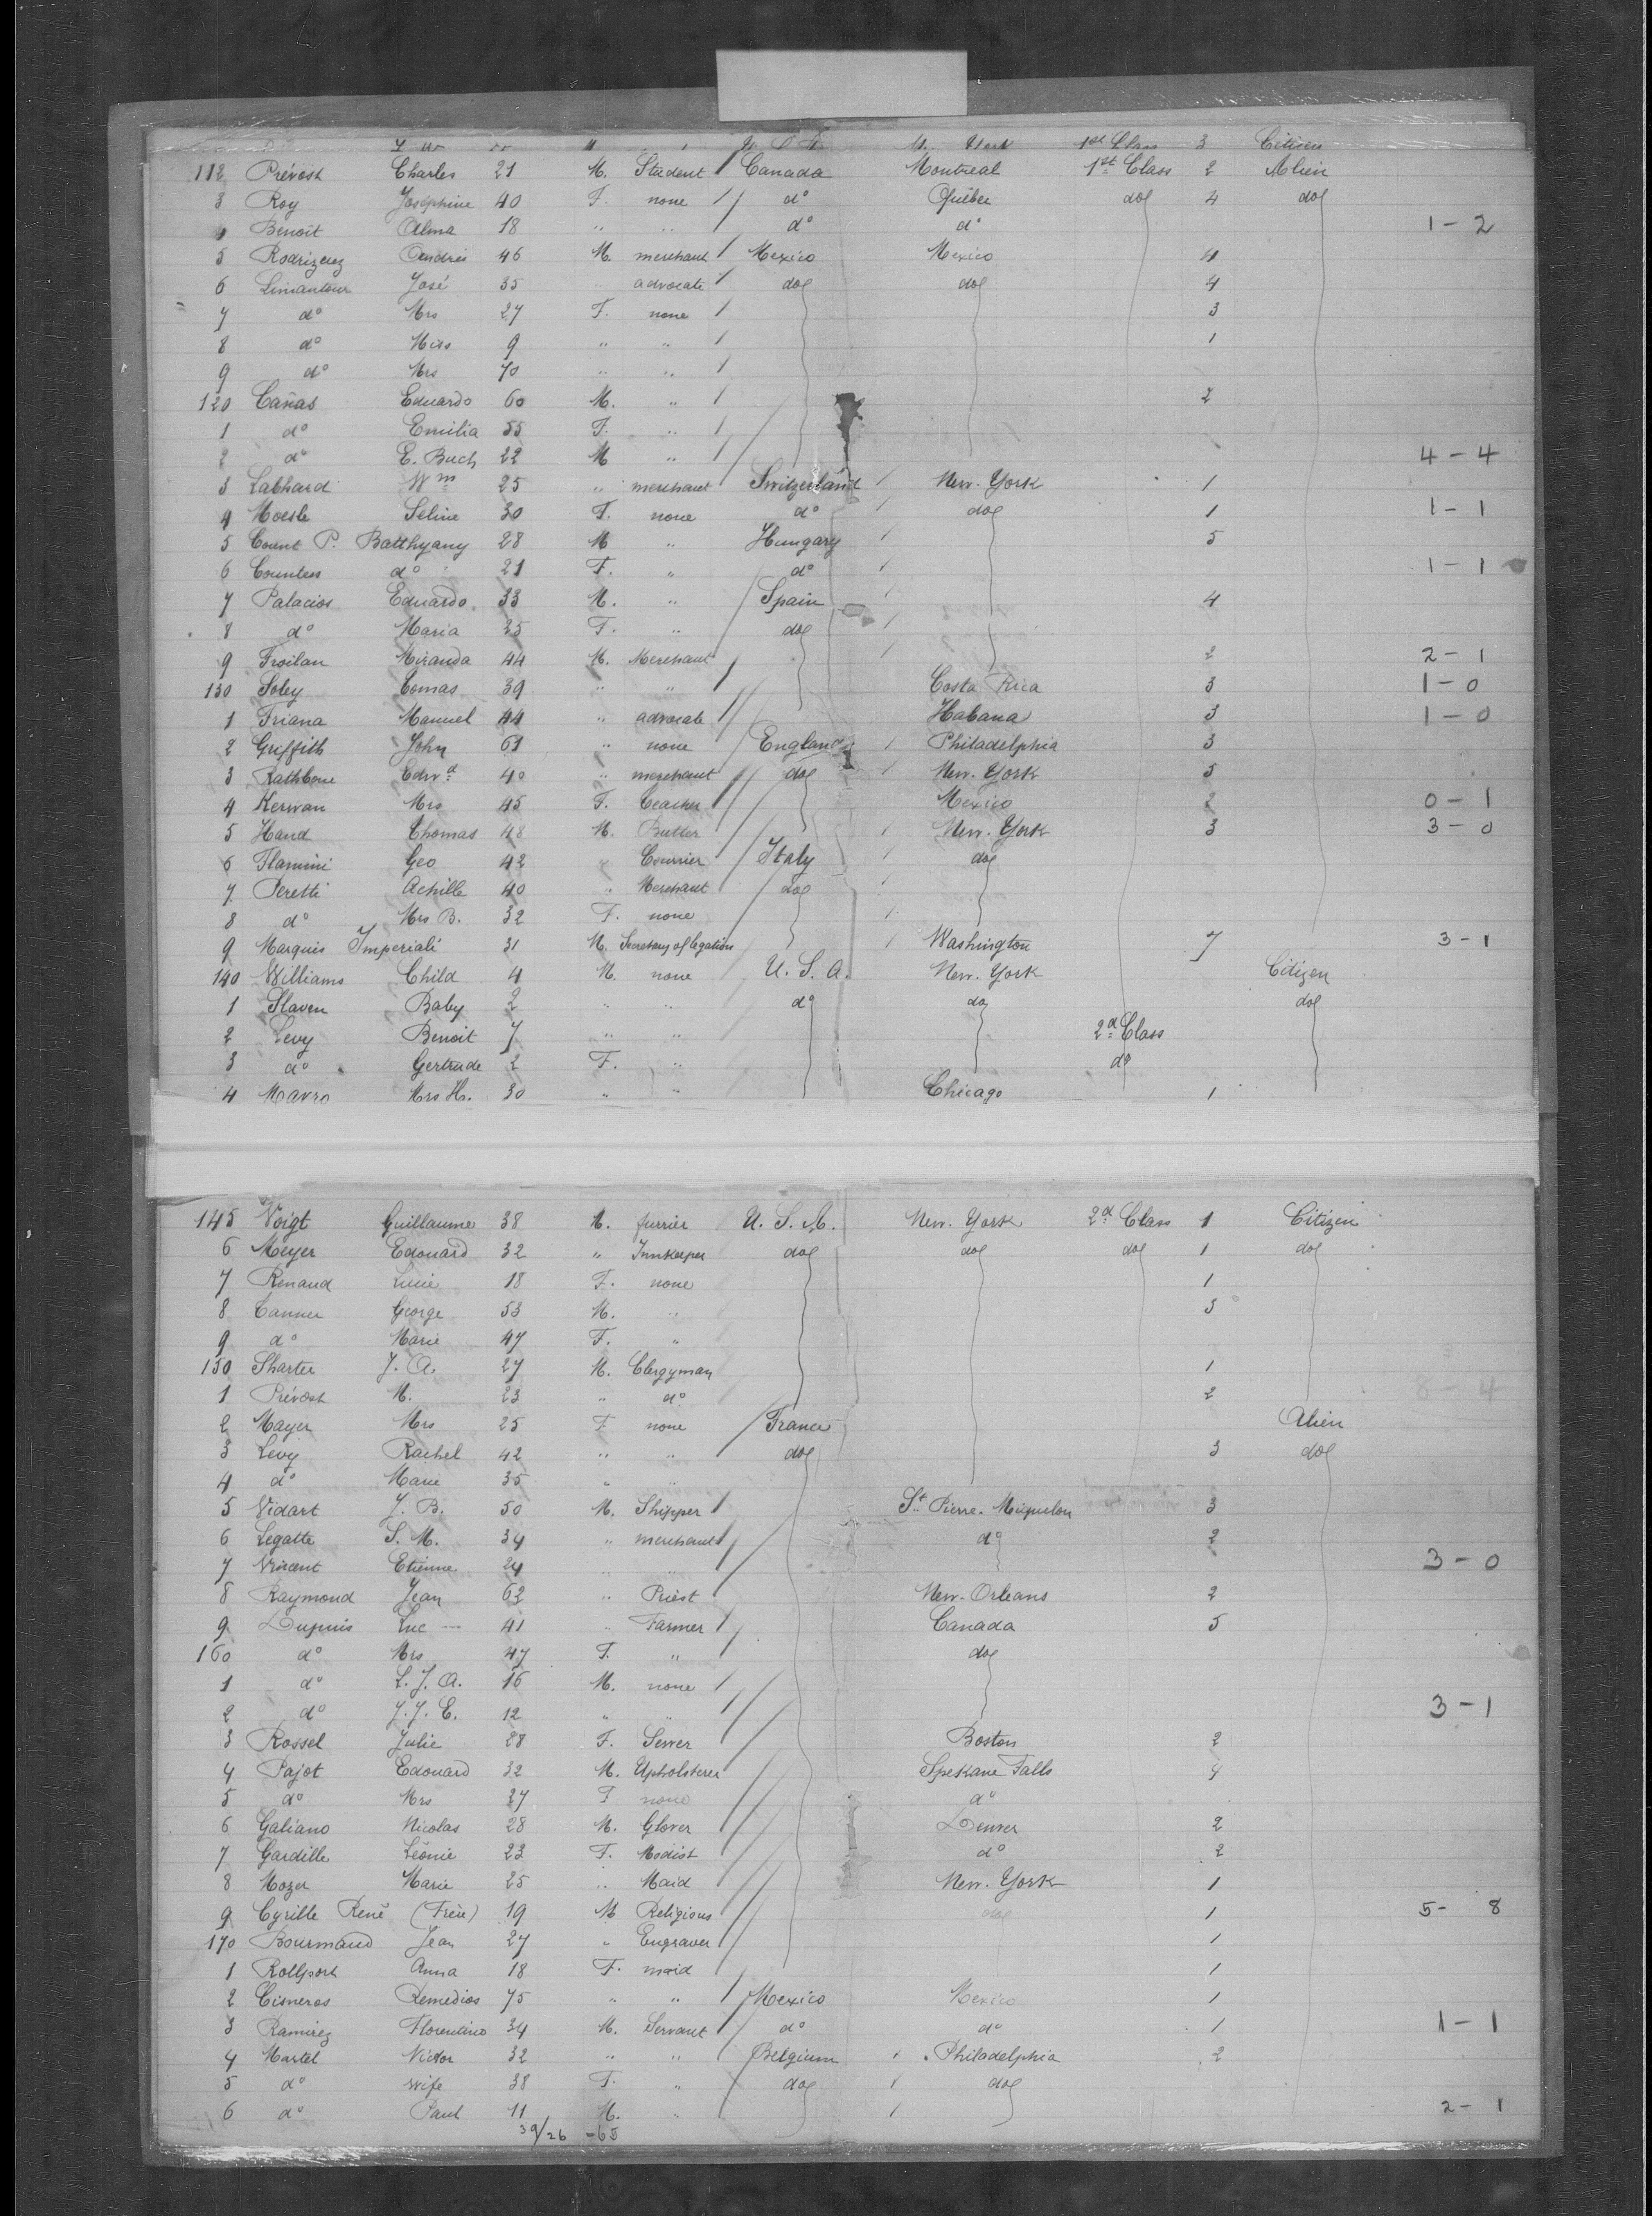 1st Class 3 Citizen
112 Prévost Charles 21 M. Student Canada Montreal 1st Class 2 Alien
3 Roy Joséphine 40 F. none do Québec do 4 do
4 Benoit Alma 18 " " do do 1-2
5 Rodriguez Andrés 46 M. merchant Mexico Mexico 4
6 Limantour José 35 " advocate do do 4
7 do Mrs 27 F. none 3
8 do Miss 9 " " 1
9 do Mrs 70 " "
120 Cañas Eduardo 60 M. " 2
1 do Emilia 55 F. "
2 do E. Buch 22 M " 4-4
3 Labhard Wm 25 " merchant Switzerland New-York 1
4 Moesle Seline 30 F. none do do 1 1-1
5 Count P. Batthyany 28 M " Hungary 5
6 Countess do 21 F. " do 1-1
7 Palacios Eduardo 33 M. " Spain 4
8 do Maria 25 F. " do
9 Froilan Miranda 44 M. Merchant 2 2-1
130 Soley Tomas 39 " " Costa Rica 3 1-0
1 Triana Manuel 44 " advocate Habana 3 1-0
2 Griffith John 61 " none England Philadelphia 3
3 Rathbone Edwd 40 " merchant do New-York 5
4 Kerwan Mrs 45 F. Teacher Mexico 2 0-1
5 Hand Thomas 48 M. Butler New-York 3 3-0
6 Flamini Geo 42 " Courrier Italy do
7 Peretti Achille 40 " Merchant do
8 do Mrs B. 32 F. none
9 Marquis Imperiali 31 M. Secretary of legation Washington 7 3-1
140 Williams Child 4 M. none U.S.A. New-York Citizen
1 Slaven Baby 2 " " do do do
2 Levy Benoit 7 " " 2d Class
3 do Gertrude 2 F. " do
4 Mavro Mrs H. 30 " " Chicago 1
145 Voigt Guillaume 38 M. furrier U.S.A. New-York 2d Class 1 Citizen
6 Meyer Edouard 32 " Innkeeper do do do 1 do
7 Renaud Lucie 18 F. none 1
8 Tanner George 53 M. " 5
9 do Marie 47 F. "
150 Sharter J. A. 27 M. Clergyman 1
1 Prévost M. 23 " do 2 8-4
2 Mayer Mrs 25 F none France Alien
3 Levy Rachel 42 " " do 3 do
4 do Marie 35 " "
5 Vidart J. B. 50 M. Shipper St Pierre-Miquelon 3
6 Legatte S. M. 34 " merchant do 2
7 Vincent Etienne 24 " " 3-0
8 Raymond Jean 62 " Priest New-Orleans 2
9 Dupuis Luc 41 " Farmer Canada 5
160 do Mrs 47 F. " do
1 do L. J. A. 16 M. none
2 do J. J. E. 12 " " 3-1
3 Rossel Julie 28 F. Sewer Boston 2
4 Pajot Edouard 32 M. Upholsterer Spekane Falls 4
5 do Mrs 27 F none do
6 Galiano Nicolas 28 M. Glover Denver 2
7 Gardille Léonie 23 F. Modist do 2
8 Mozer Marie 25 " Maid New-York 1
9 Cyrille René (Frère) 19 M Religious do 1 5-8
170 Bourmaud Jean 27 " Engraver 1
1 Rollport Anna 18 F. maid 1
2 Cisneros Remedios 75 " " Mexico Mexico 1
3 Ramirez Florentino 34 M. Servant do do 1 1-1
4 Martel Victor 32 " " Belgium Philadelphia 2
5 do wife 38 F. " do do
6 do Paul 11 M. " 2-1
39/26 -65